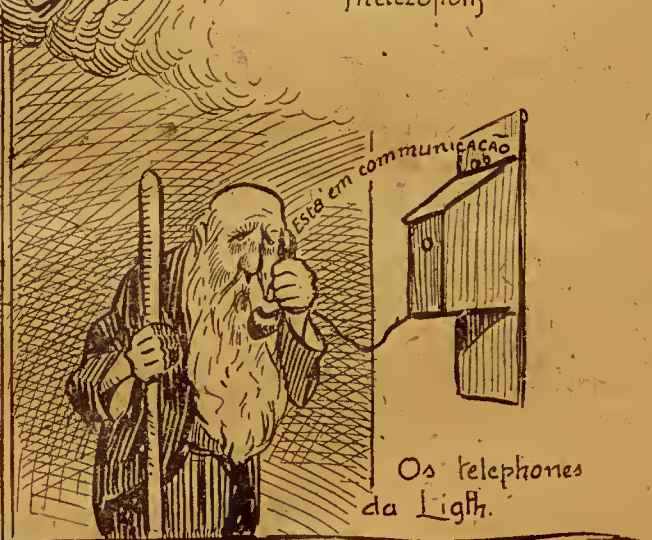 Está em communicação
Os telephones
da Ligth.